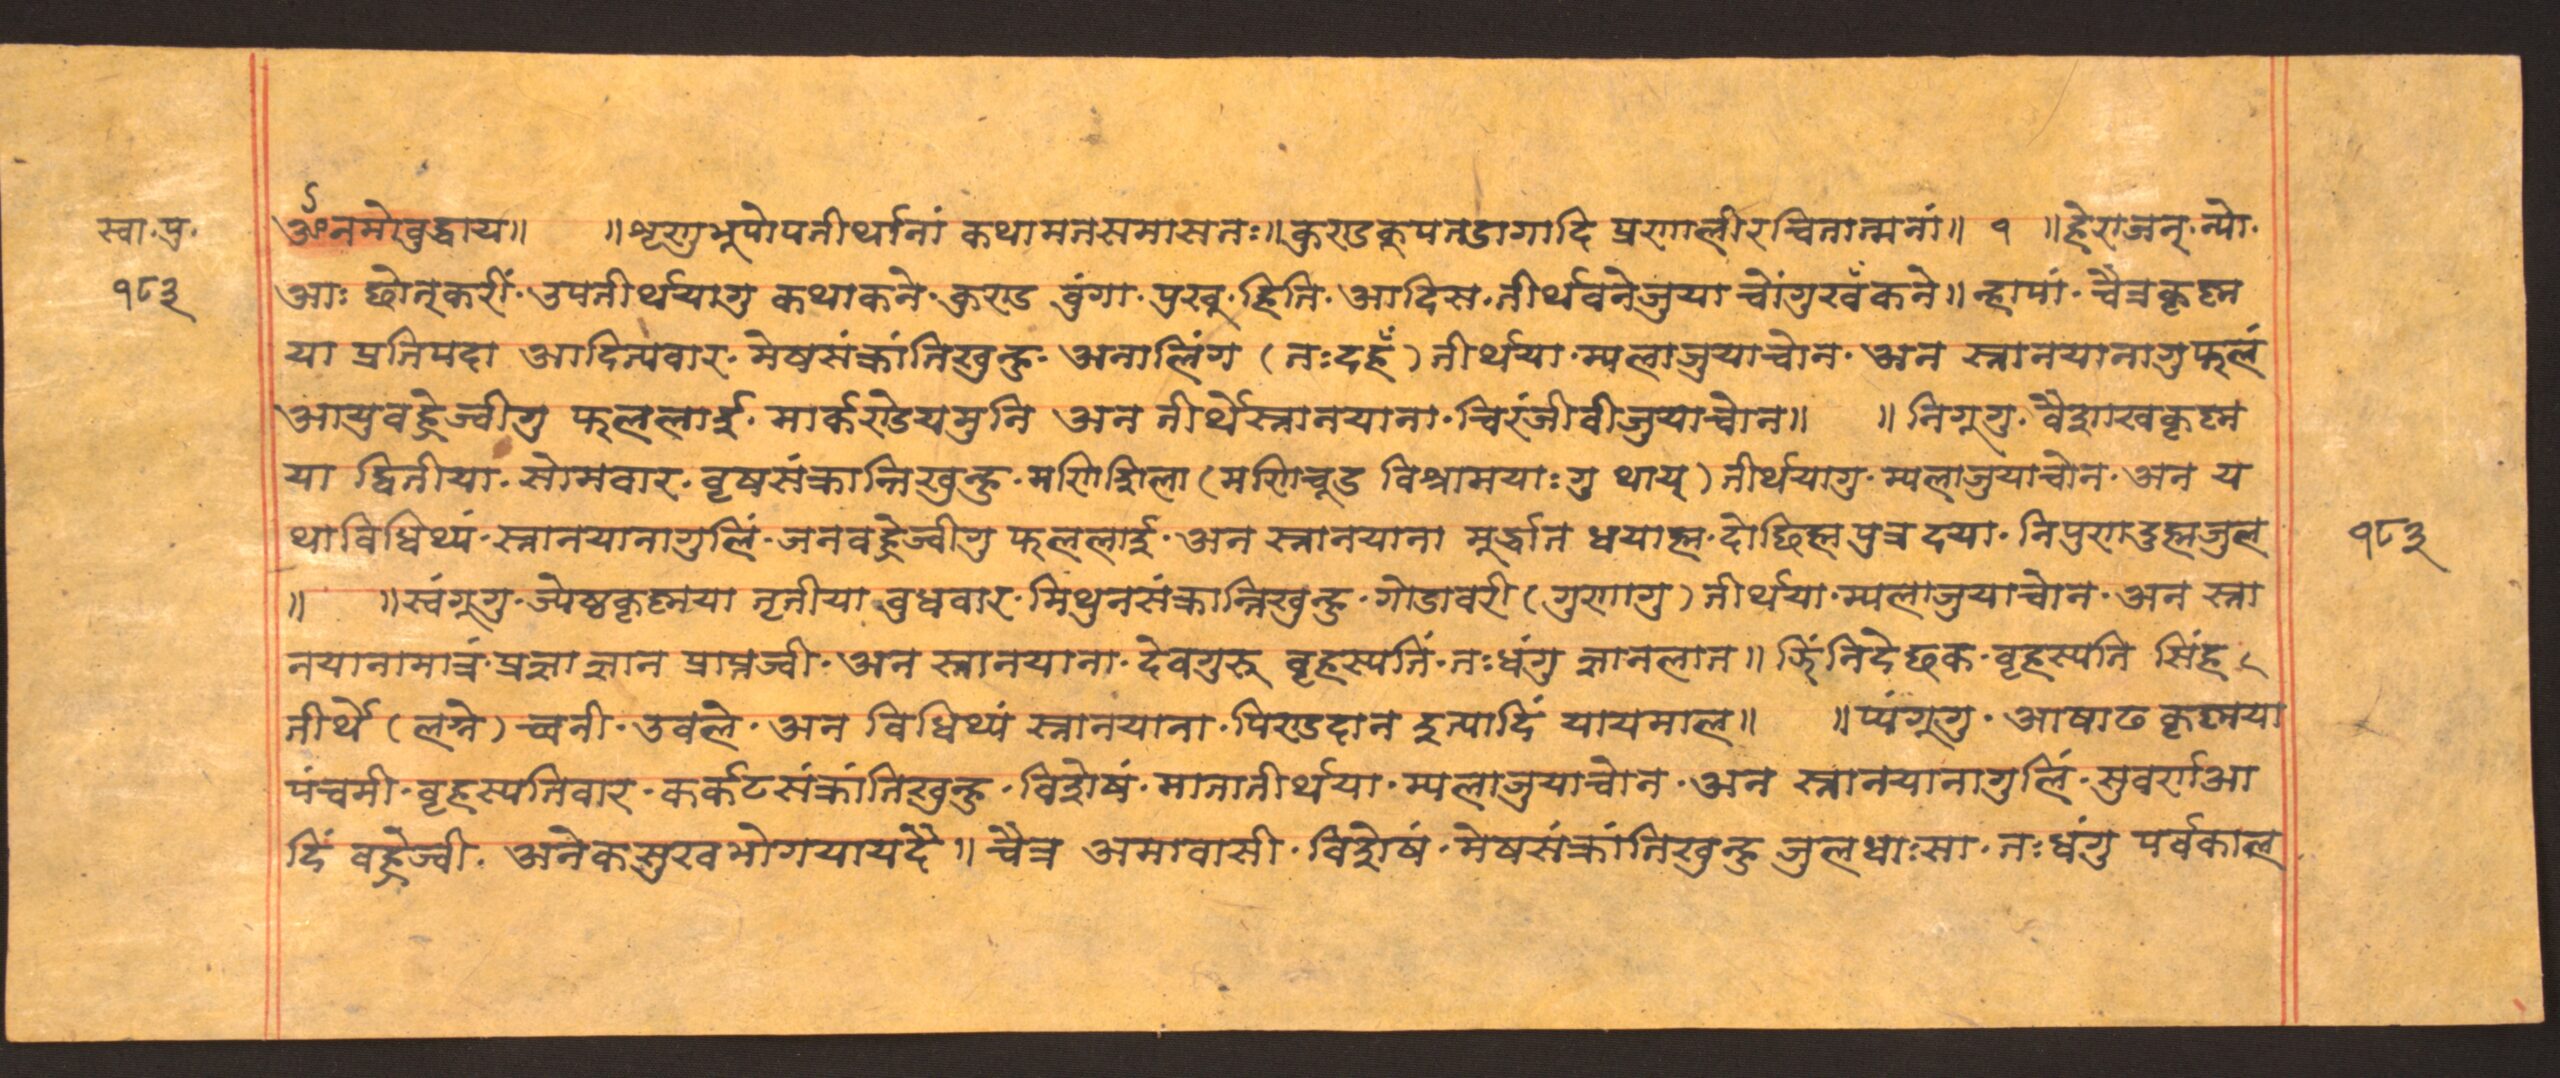 स्वा.पु.
१८३
ॐनमोबुद्धाय॥ ॥शृणुभूपोपतीर्थानां कथामतसमासतः॥कुण्डकूपतडागादि प्रणालीरचितात्मनां॥ १ ॥हेराजन्.न्यो.
आः छोत्करीं.उपतीर्थयागु कथाकने.कुण्ड बुंगा.पुखू.हिति.आदिस.तीर्थवनेजुया चोंगुखँकने॥न्हापां.चैत्रकृष्ण
या प्रतिपदा आदित्यवार.मेषसंक्रांतिखुन्हु.अनालिंग (तःदहँ) तीर्थया.म्यलाजुयाचोन.अन स्नानयानागुफलं
आयुवह्रेज्वीगु फललाई.मार्कण्डेयमुनि अन तीर्थेस्नानयाना.चिरंजीवीजुयाचोन॥ ॥निगूगु.वैशाखकृष्ण
या द्वितीया.सोमवार.वृषसंक्रान्तिखुन्हु.मणिशिला(मणिचूड विश्रामयाःगु थाय्)तीर्थयागु.म्यलाजुयाचोन.अन य
थाविधिथ्यं.स्नानयानागुलिं.जनवह्रेज्वीगु फललाई.अन स्नानयाना मूर्द्धात धयाह्म.दोछिह्म पुत्र दया.निपुणादुह्मजुल
॥ ॥स्वंगूगु.ज्येष्ठकृष्णया तृतीया बुधवार.मिथुनसंक्रान्तिखुन्हु.गोडावरी(गुणागु)तीर्थया.म्यलाजुयाचोन.अन स्ना
नयानामात्रं.प्रज्ञाज्ञान प्राप्तज्वी.अन स्नानयाना.देवगुरु बृहस्पतिं.तःधंगु ज्ञानलात॥झिंनिदँछक.बृहस्पति सिंह
तीर्थे(लग्ने)च्वनी.उवले.अन विधिथ्यं स्नानयाना.पिण्डदान इत्यादिं यायमाल॥ ॥प्यंगूगु.आषाढ कृष्णया
पंचमी.बृहस्पतिवार.कर्कटसंक्रांतिखुन्हु.विशेषं.मातातीर्थया.म्यलाजुयाचोन.अन स्नानयानागुलिं.सुवर्णआ
दिं वह्रेज्वी.अनेकसुखभोगयायदै॥चैत्र अमावासी.विशेषं.मेषसंक्रांतिखुन्हु जुलधाःसा.तःधंगु पर्वकाल
१८३